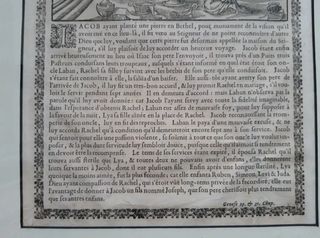 IACOB ayant planté une pierre en Bethel, pour monument de la vision qu'il
avoit euë en ce lieu-là, il fit vœu au Seigneur de ne point reconnoître d'autre
Dieu que luy, voulant que cette pierre fut desormais appellée la maison du Sei-
gneur, s'il luy plaisoit de luy accorder un heureux voyage. Jacob étant enfin
arrivé heureusement au lieu où Isac son pere l'envoyoit, il trouva prés d'un Puits trois
Pasteurs conduisans leurs troupeaux, ausquels s'étant informé en quel état étoit son on-
cle Laban, Rachel sa fille y survint avec les brebis de son pere qu'elle conduisoit. Jacob
s'étant fait connoître à elle, la salüa d'un baiser. Elle aussi-tôt ayant averty son pere de
l'arrivée de Jacob, il luy fit un tres-bon accueil, & luy promit Rachel en mariage, s'il vou-
loit le servir pendant sept années. Il en demeura d'accord: mais Laban n'observa pas la
parole qu'il luy avoit donnée: car Jacob l'ayant servy avec toute la fidelité imaginable,
dans l'esperance d'obtenir Rachel; Laban eut assez de mauvaise foy, pour luy supposer à
la faveur de la nuit, Lya sa fille aînée en la place de Rachel. Jacob reconnoissant la trom-
perie de son oncle, luy en fit des reproches. Laban le paya d'une mauvaise excuse, & ne
luy accorda Rachel qu'à condition qu'il demeureroit encore sept ans à son service. Jacob
qui sentoit pour elle une passion violente, se soûmit à tout ce que son oncle luy voulut im-
poser, & la plus dure servitude luy sembloit douce, pourveu que celle qui étoit sa maîtresse
en devint être la récompense. Le tems de ses services étant expiré, il épousa Rachel qu'il
trouva aussi sterile que Lya, & toutes deux ne pouvans avoir d'enfans, elles donnerent
leurs servantes à Jacob, dont il eut plusieurs fils. Enfin aprés une longue sterilité, Lya
quoique la moins aimée, fut la plus feconde; car elle enfanta Ruben, Simeon, Levi & Juda.
Dieu ayant compassion de Rachel, qui s'étoit vûë long-tems privée de sa fecondité, elle eut
l'avantage de donner à Jacob un fils nommé Joseph, que son pere cherissoit plus tendrement
que ses autres enfans.
Genese 29. & 30. Chap.